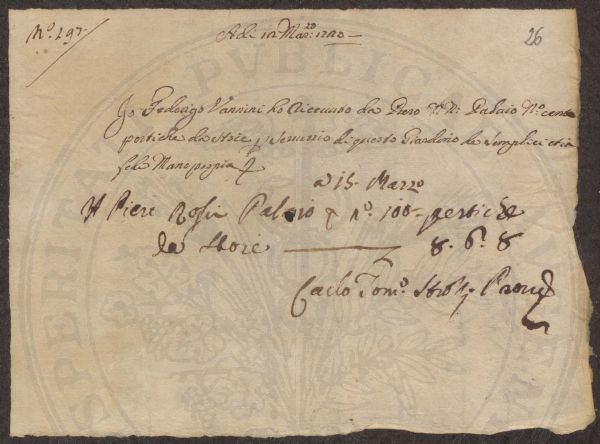 N.º 197.
Adi 12 Mar.zo 1720
26
Io Federigo Vannini ho riceuuto da Piero Palaio N.º cento
pertiche da stoie p seruizio di questo Giardino de Semplici
fede Mano propria
a 15. Marzo
A Piero Rosi Palaio p n.º 100 pertiche
da stoie 8. 6. 8
Carlo Tom.º Strozzi Prou.